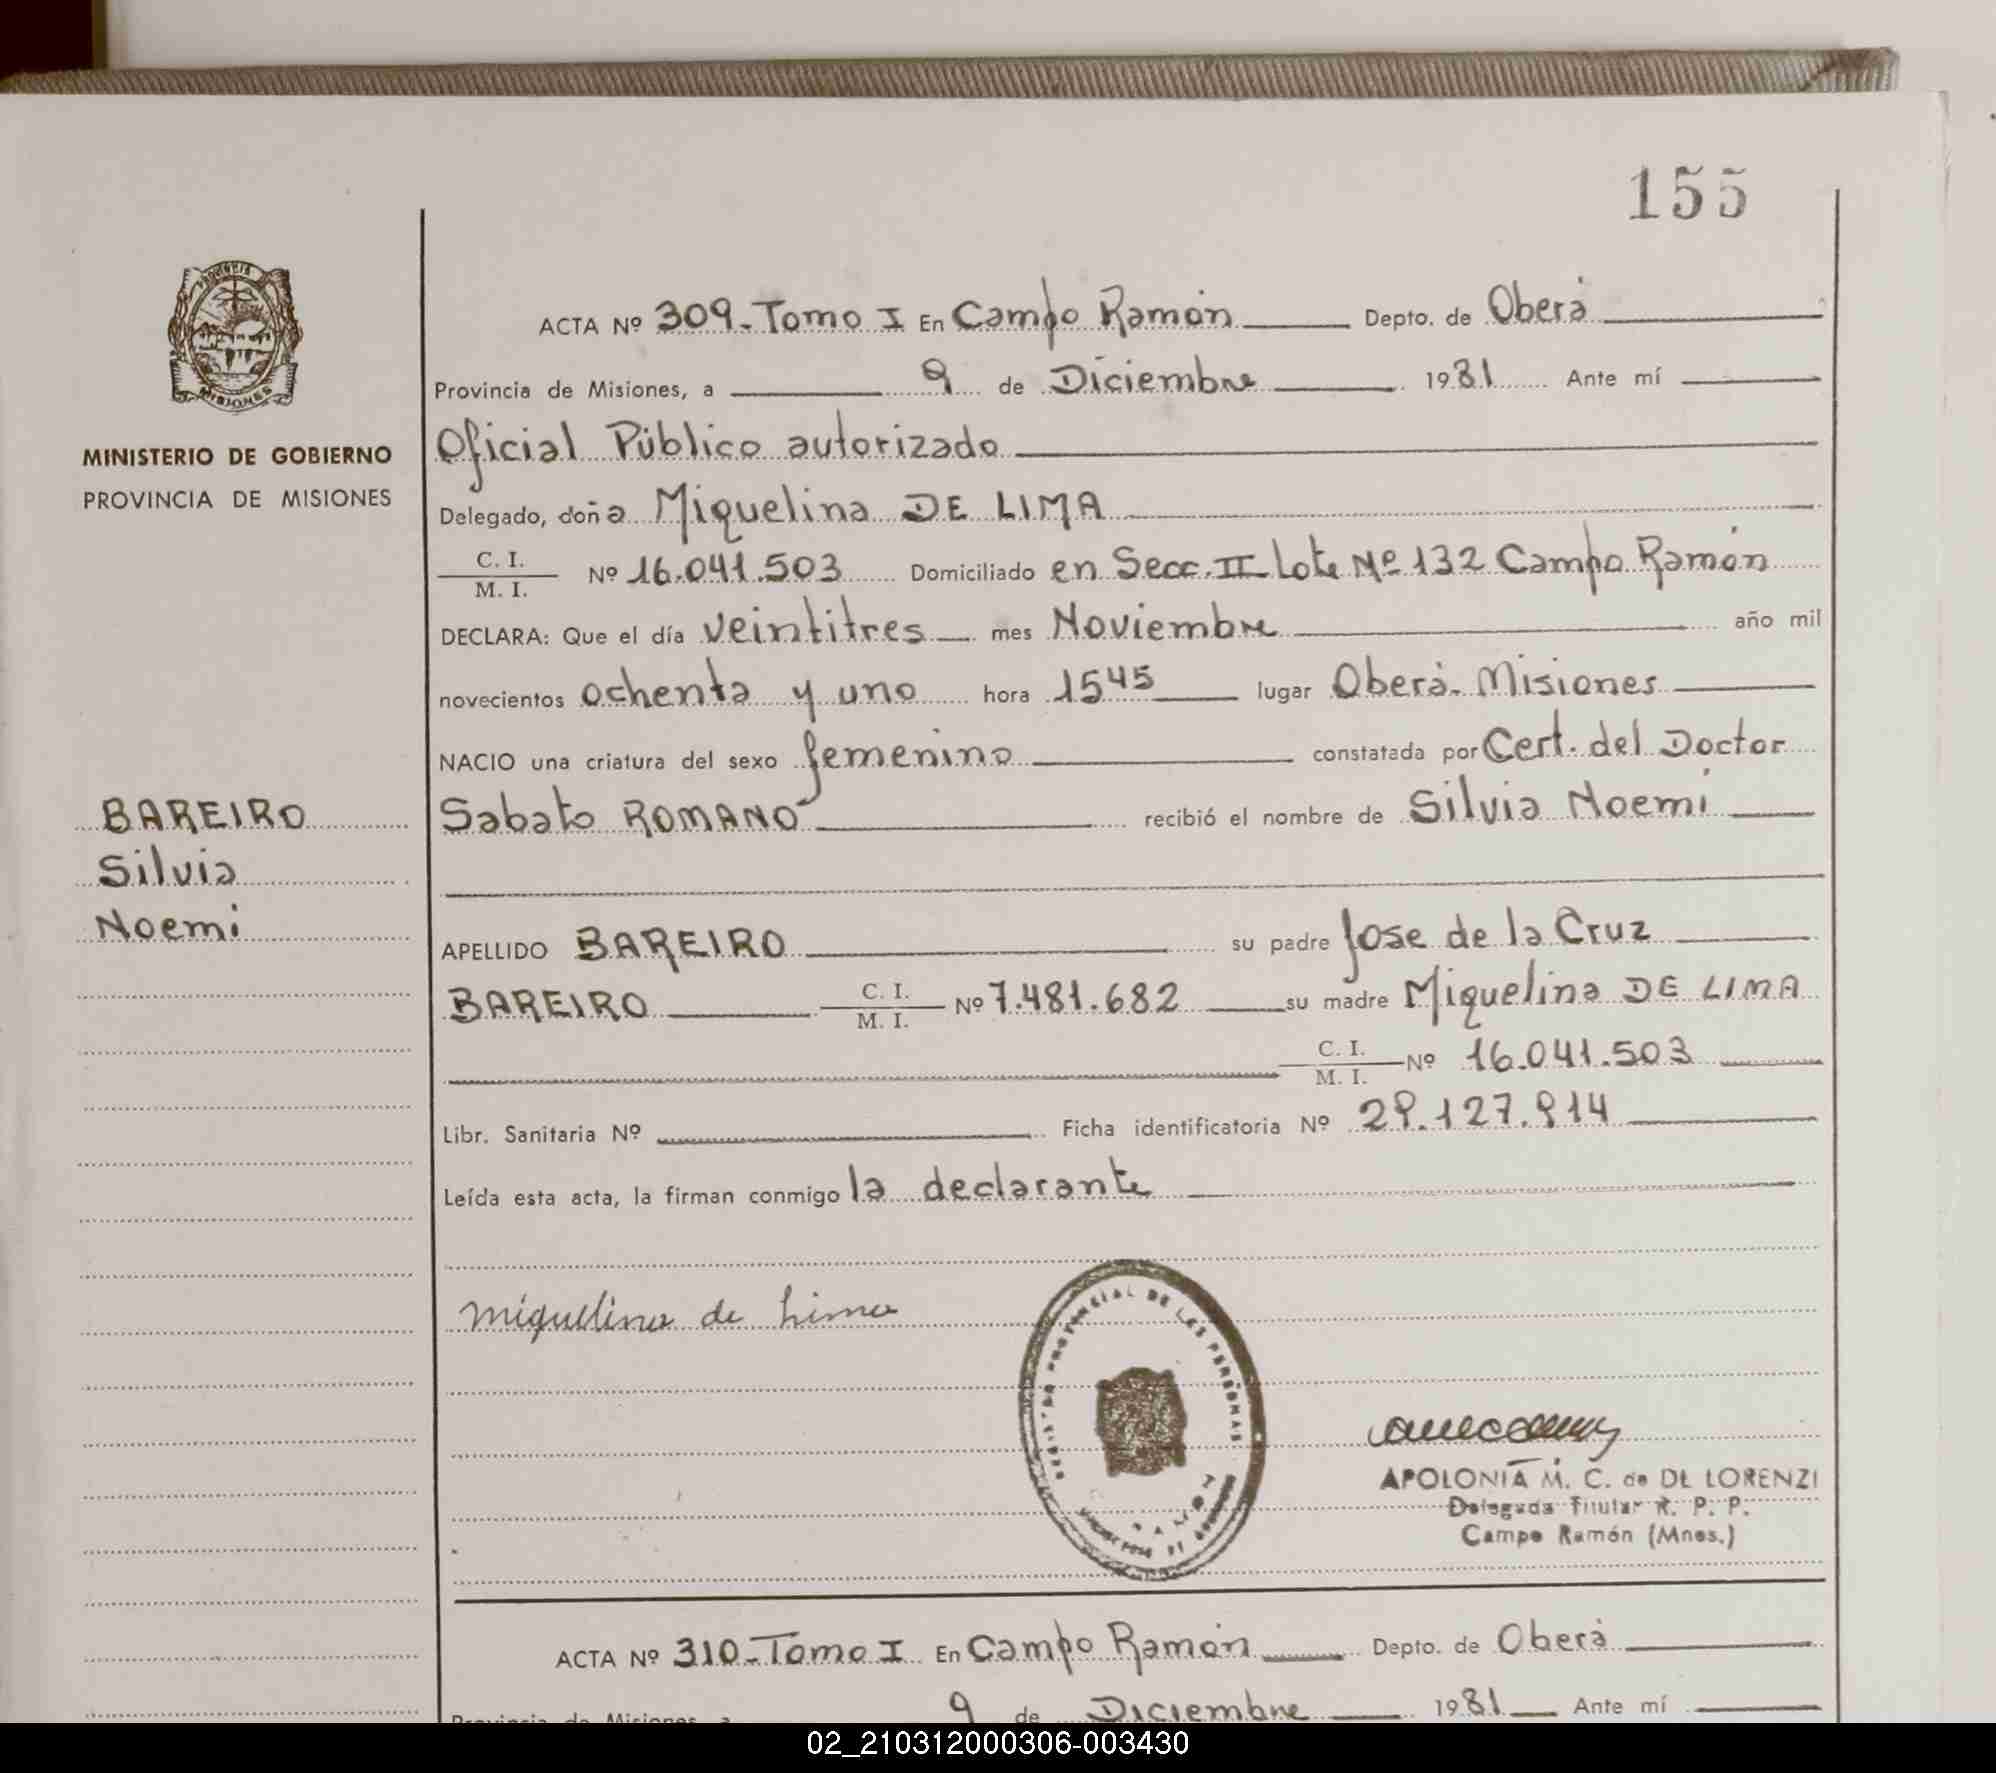 155
PROVINCIA
MISIONES
MINISTERIO DE GOBIERNO
PROVINCIA DE MISIONES
BAREIRO
Silvia
Noemi
ACTA Nº 309-Tomo I En Campo Ramón Depto. de Oberá
Provincia de Misiones, a 9 de Diciembre 1981 Ante mí
Oficial Público autorizado
Delegado, doña Miquelina DE LIMA
C. I.
M. I. Nº 16.041.503 Domiciliado en Secc. II Lote Nº 132 Campo Ramón
DECLARA: Que el día veintitres mes Noviembre año mil
novecientos ochenta y uno hora 15 45 lugar Oberá. Misiones
NACIO una criatura del sexo femenino constatada por Cert. del Doctor
Sabato ROMANO recibió el nombre de Silvia Noemi
APELLIDO BAREIRO su padre Jose de la Cruz
BAREIRO C. I. M. I. Nº 7.481.682 su madre Miquelina DE LIMA
C. I. M. I. Nº 16.041.503
Libr. Sanitaria Nº Ficha identificatoria Nº 29.127.914
Leída esta acta, la firman conmigo la declarante
miquelina de Lima
PROVINCIAL DE LAS PERSONAS
APOLONIA M. C. de DE LORENZI
Delegada Titular R. P. P.
Campo Ramón (Mnes.)
ACTA Nº 310-Tomo I En Campo Ramón Depto. de Oberá
Provincia de Misiones, a 9 de Diciembre 1981 Ante mí
02_210312000306-003430